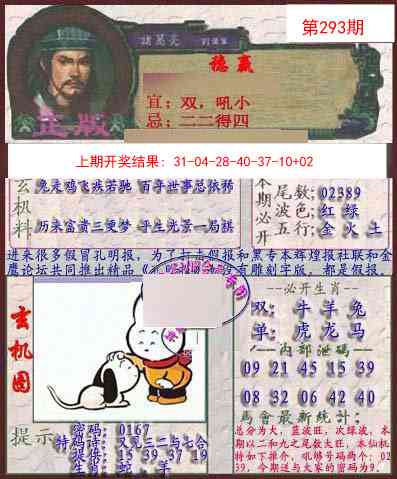 第293期
諸葛亮
稳赢
宜：双，吼小
忌：二二得四
正版
上期开奖结果：31-04-28-40-37-10+02
玄机料
兔走鸡飞族若驰 百年世事总依稀
历来富贵三更梦 寻生光景一局棋
本期必开
尾数：02389
波色：红 绿
五行：金 火 土
进来很多假冒孔明报，为了打击假报和黑专本辉煌报社联和金
鹰论坛共同推出精品
没有雕刻字版，都是假报。
玄机图
必开生肖
双：牛 羊 兔
单：虎 龙 马
内部泄码
09 21 45 15 39
08 32 06 42 40
馬會最新統計：
总分为大，蓝波旺，次绿波，本
期以二和九之尾数大旺，本仙机
特如下推介，吼够号码两个：02
39，今期送与大家的密码为9。
提示
密码：0167
特码诗：又见三二与七合
提供：15 39 37 19
生肖：蛇、羊